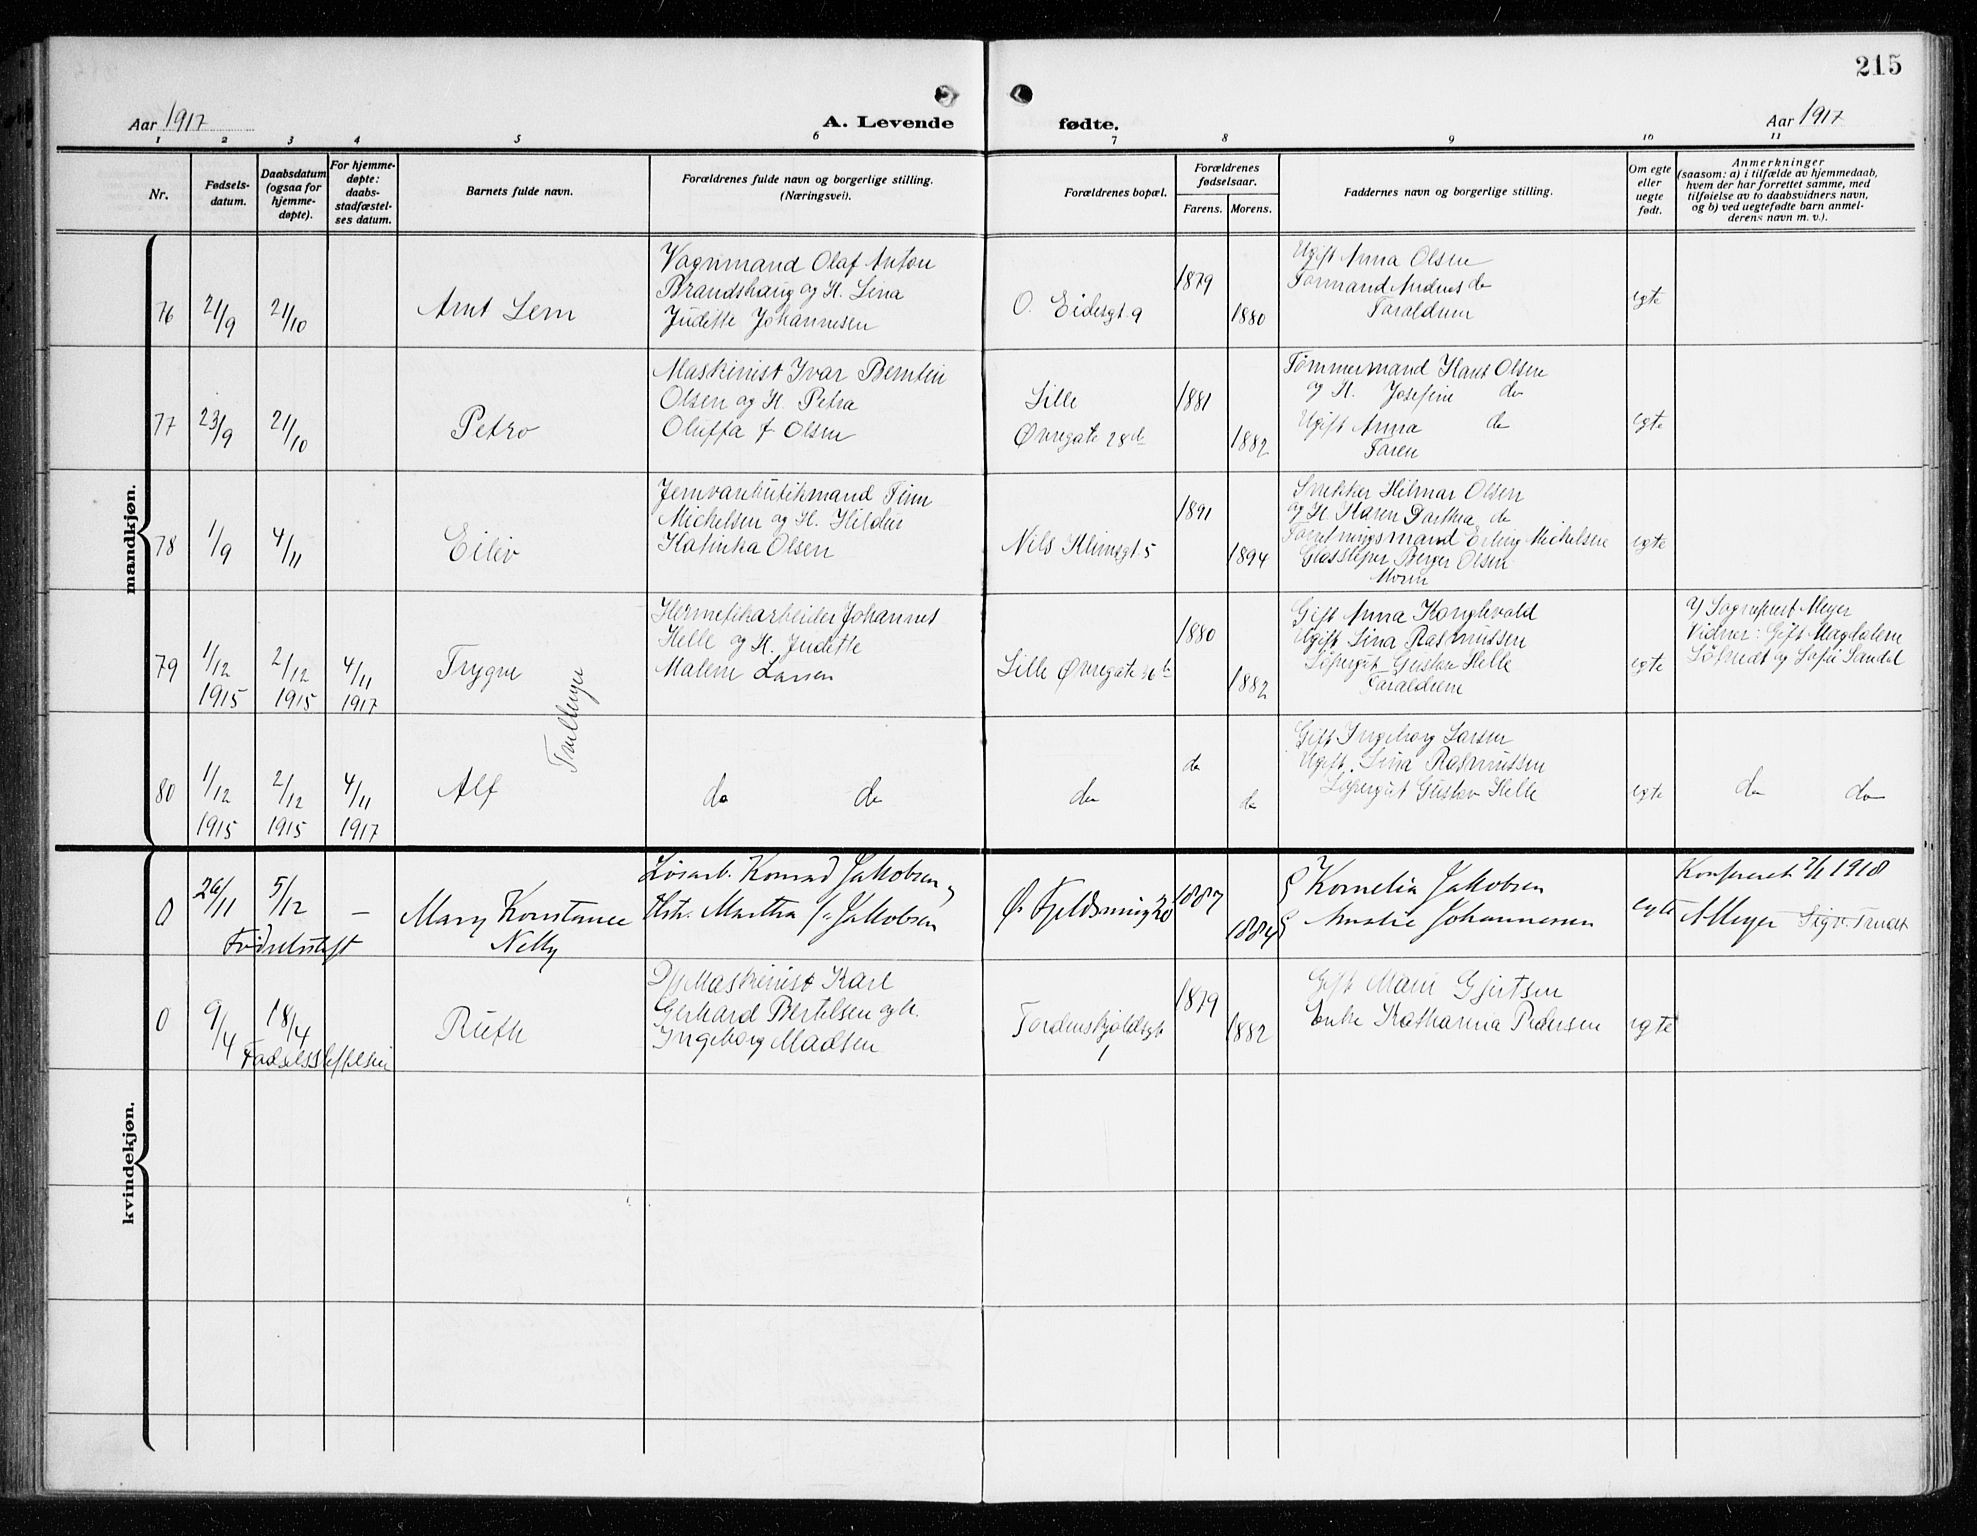 215
Aar 1917
A. Levende
fødte.
Aar 1917
1 2 3 4 5 6 7 8 9 10 11
Nr.
Fødsels-
datum.
Daabsdatum
(ogsaa for
hjemme-
døpte).
For hjemme-
døpte:
daabs-
stadfæstel-
ses datum.
Barnets fulde navn.
Forældrenes fulde navn og borgerlige stilling.
(Næringsvei).
Forældrenes bopæl.
Forældrenes
fødselsaar.
Farens. Morens.
Faddernes navn og borgerlige stilling.
Om egte
eller
uegte
født.
Anmerkninger
(saasom: a) i tilfælde av hjemmedaab,
hvem der har forrettet samme, med
tilføielse av to daabsvidners navn,
og b) ved uegtefødte barn anmel-
derens navn m. v.).
mandkjøn.
76
21/9
21/10
Arnt Lem
Vognmand Olaf Anton
Brandshaug og H. Lina
Juditte Johannesen
O. Eidesgt. 9
1879
1880
Ugift Anna Olsen
Formand Anders do
Foraldrene
egte
77
23/9
21/10
Petro
Maskinist Ivar Berntin
Olsen og H. Petra
Oluffa f Olsen
Lille
Øvregate 28d
1881
1882
Tømmermand Hans Olsen
og H. Josefine do
Ugift Anna do
Faren
egte
78
1/9
4/11
Eiliv
Michelsen og H. Hildur
Katinka Olsen
Nils Klimsgt 5
1891
1894
Snekker Hilmar Olsen
og H. Karen Dorthea do
Forretningsmand Erling Michelsen
Glassliper Berger Olsen
Moren
egte
79
1/12
1915
2/12
1915
4/11
1917
Trygve
Hermetikarbeider Johannes
Helle og H. Juditte
Malene Larsen
Lille Øvregate
1880
1882
Gift Anna Konghvold
Ugift Lina Rasmussen
Løpergut Gustav Helle
Foraldrene
egte
a) Sogneprest Meyer
Vidner: Gift Magdalene
og Sofie Sandal
Trillinger
80
1/12
1915
2/12
1915
4/11
1917
Alf
do do
do
do
do
Gift Ingeborg Larsen
Ugift Lina Rasmussen
Løpergut Gustav Helle
egte
do do
kvindekjøn.
0
26/11
5/12
–
Fødselsstift
Mary Konstance
Nelly
Løsarb. Konrad Jakobsen og
Hstr. Martha f. Jakobsen
Ø. Fjeldsmug 20
1887
1884
Kornelia Jakobsen
Amalie Johannessen
egte
Konfereret 7/1 1918
AMeyer Sigv. Trædt
0
9/4
18/4
Fødselsstiftelsen
Ruth
Maskinist Karl
Gerhard Bertelsen og h.
Ingeborg Madsen
Tordenskjoldsgt
1
1879
1882
Gift Marie Gjertsen
Enke Katharina Pedersen
egte